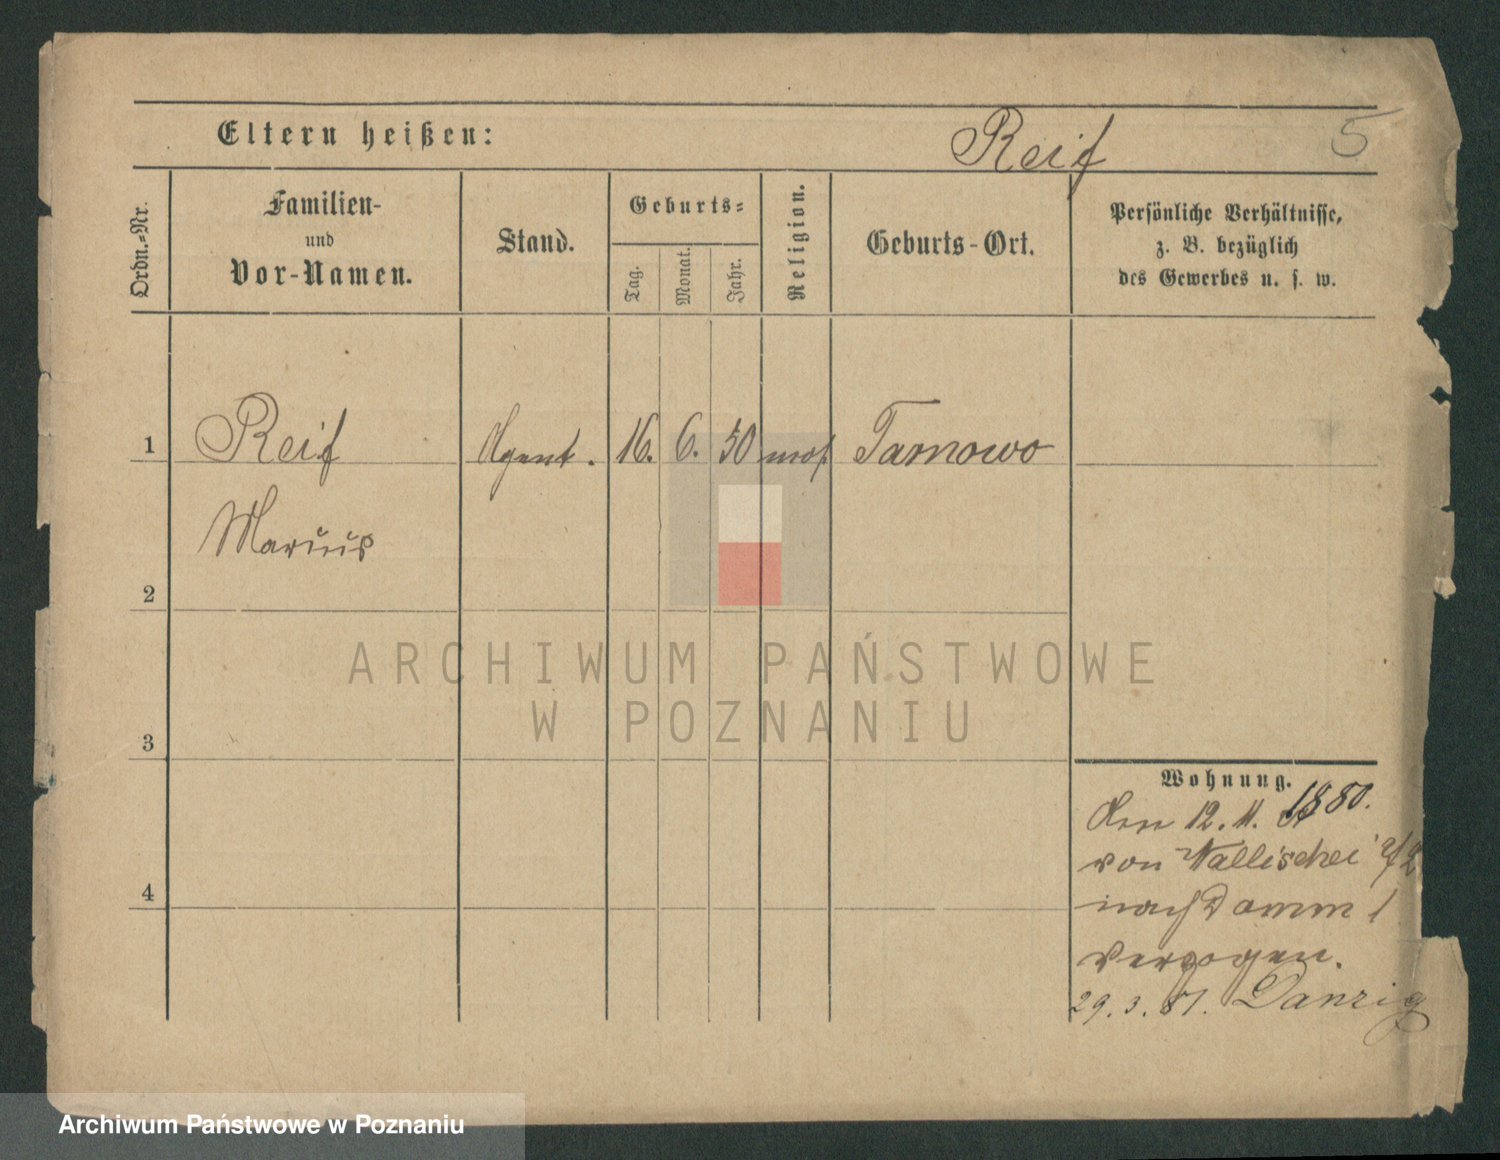 Eltern heißen: Reif 5
Ordn.-Nr.
Familien-
und
Vor-Namen.
Stand.
Geburts-
Tag.
Monat.
Jahr.
Religion.
Geburts-Ort.
Persönliche Verhältnisse,
z. B. bezüglich
des Gewerbes u. s. w.
1 Reif Agent. 16. 6. 50 mos. Tarnowo
Marcus
2
3
4
Wohnung.
Den 12. 11. 1880.
von Wallischei
nach Damm 1
verzogen.
29. 3. 81. Danzig
ARCHIWUM PAŃSTWOWE
W POZNANIU
Archiwum Państwowe w Poznaniu